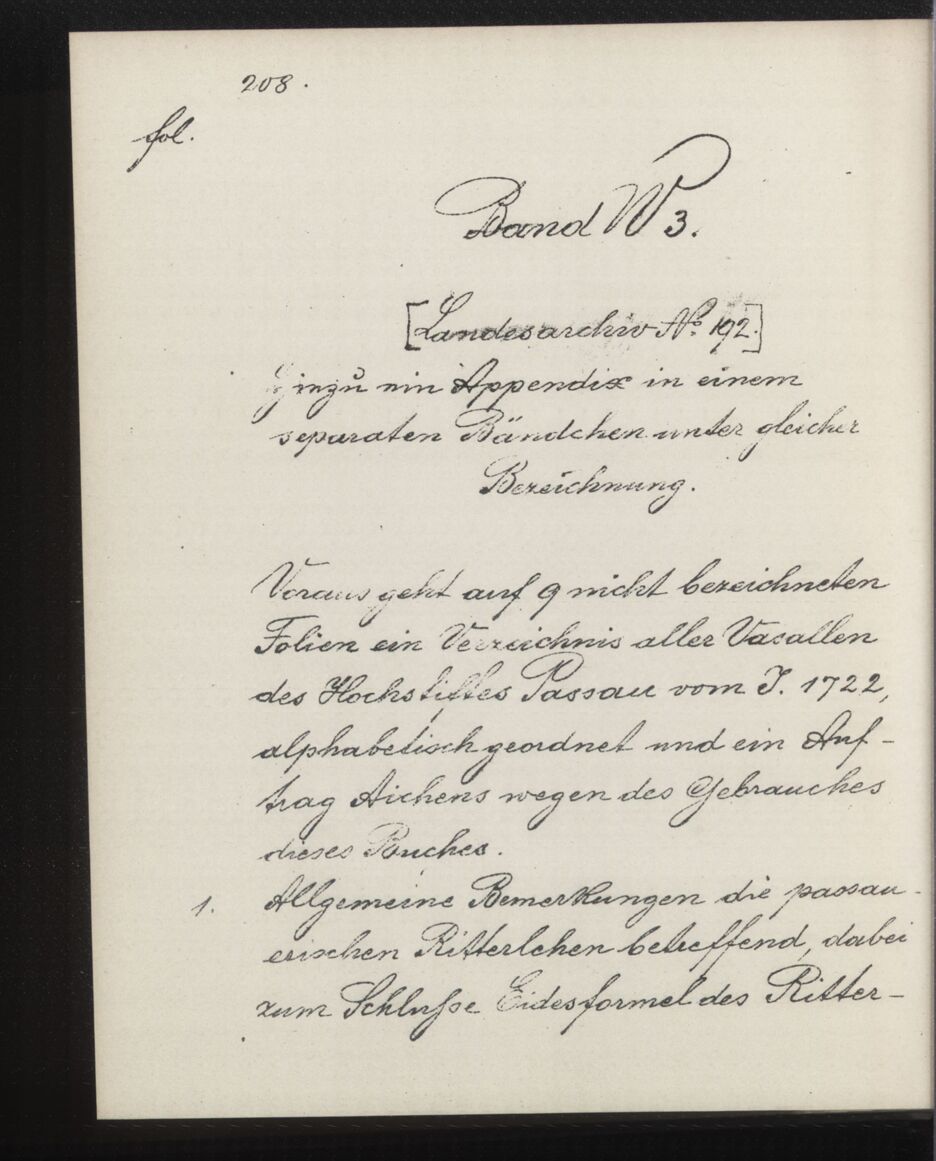 208.
fol.
Band W 3.
[Landesarchiv No 192.]
Hinzu ein Appendix in einem
separaten Bändchen unter gleicher
Bezeichnung.
Voraus geht auf 9 nicht bezeichneten
Folien ein Verzeichnis aller Vasallen
des Hochstiftes Passau vom J. 1722,
alphabetisch geordnet und ein Auf-
trag Aichens wegen des Gebrauches
dieses Buches.
1. Allgemeine Bemerkungen die passau-
erischen Ritterlehen betreffend, dabei
zum Schluße Eidesformel des Ritter-